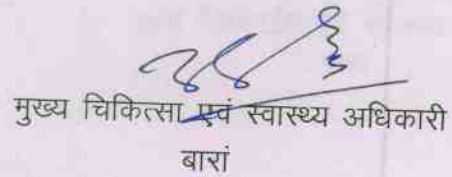 मुख्य चिकित्सा एवं स्वास्थ्य अधिकारी
बारां